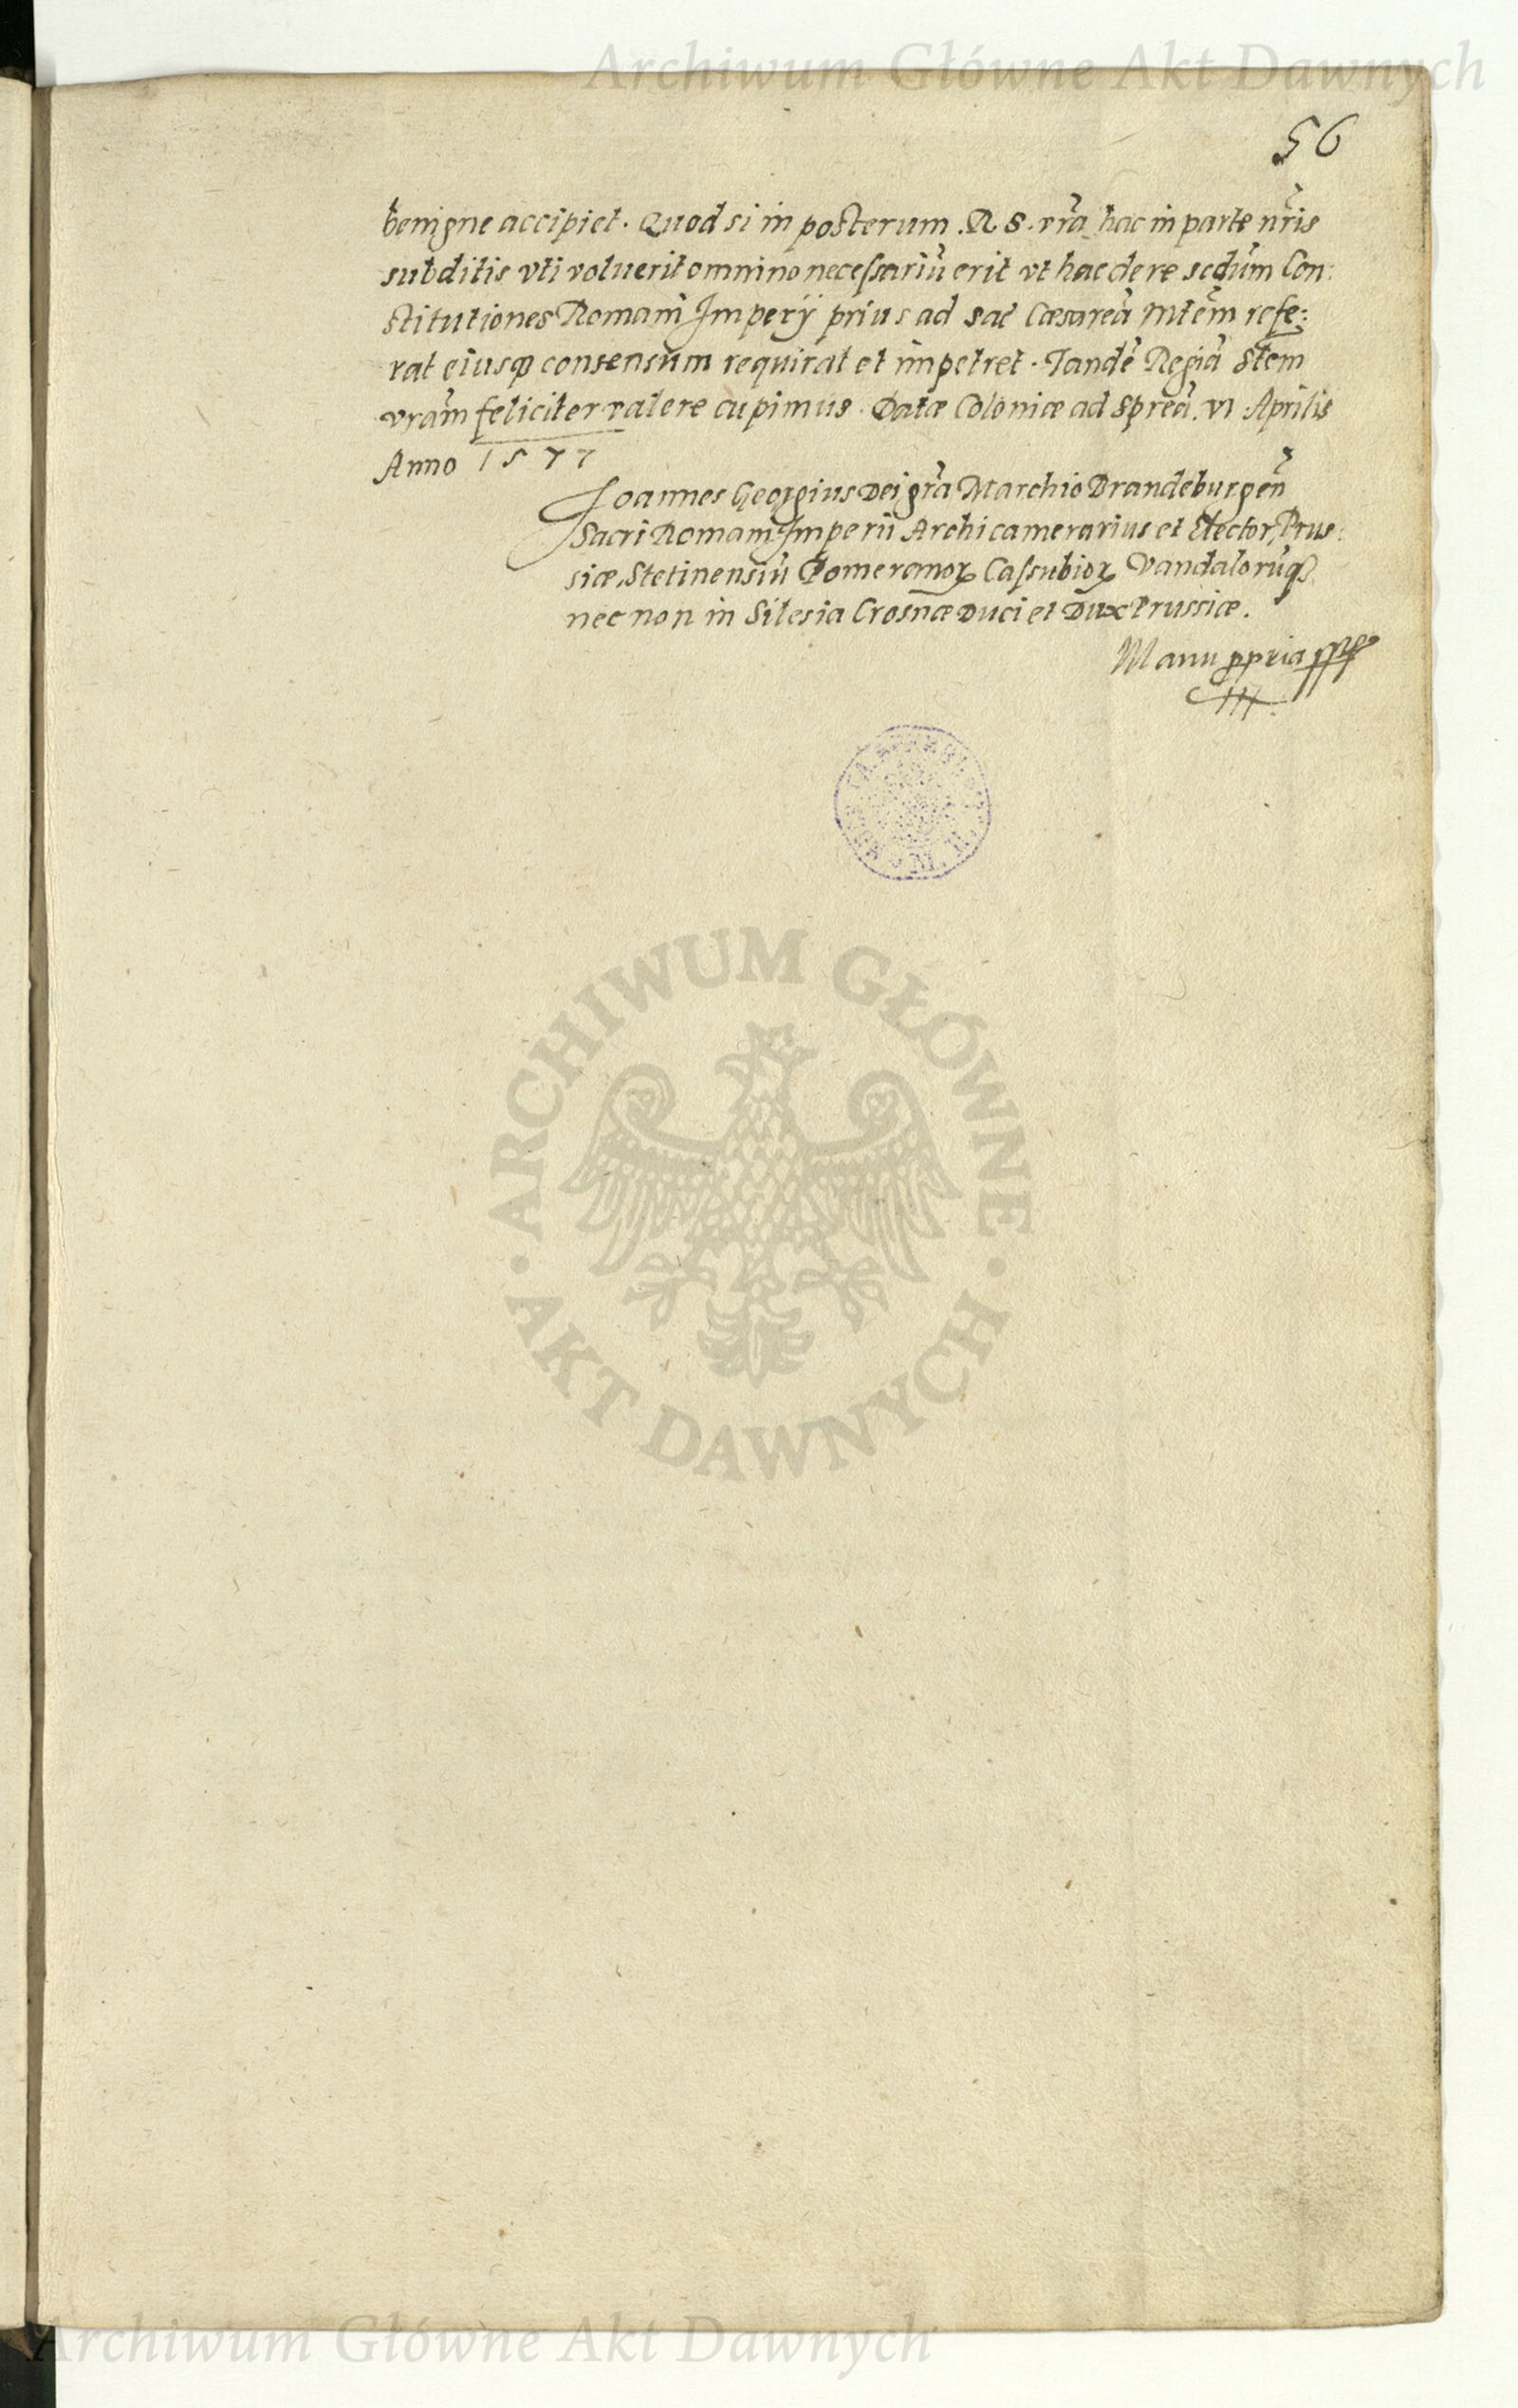 Archiwum Główne Akt Dawnych
56
benigne accipiet. Quod si in posterum. R S. vr̃a hac in parte nr̃is
subditis vti voluerit omnino necessariũ erit vt hac de re secdũm Con:
stitutiones Romani Imperÿ prius ad sac̃ Cæsareã Mtẽm refe:
rat eiusq consensum requirat et impetret. Tandẽ Regiã Stem
vrãm feliciter valere cupimus. Datæ Coloniæ ad Spreã. VI Aprilis
Anno 1577
Joannes Georgius Dei gr̃a Marchio Brandeburgeñ
Sacri Romani Imperii Archicamerarius et Elector, Prus:
siæ, Stetinensiũ Pomeranoꝝ Cassubioꝝ Vandalorũq
nec non in Silesia Crosnæ Duci et Dux Prussiæ.
Manu ꝓpria
ARCHIWUM GŁÓWNE
AKT DAWNYCH
Archiwum Główne Akt Dawnych